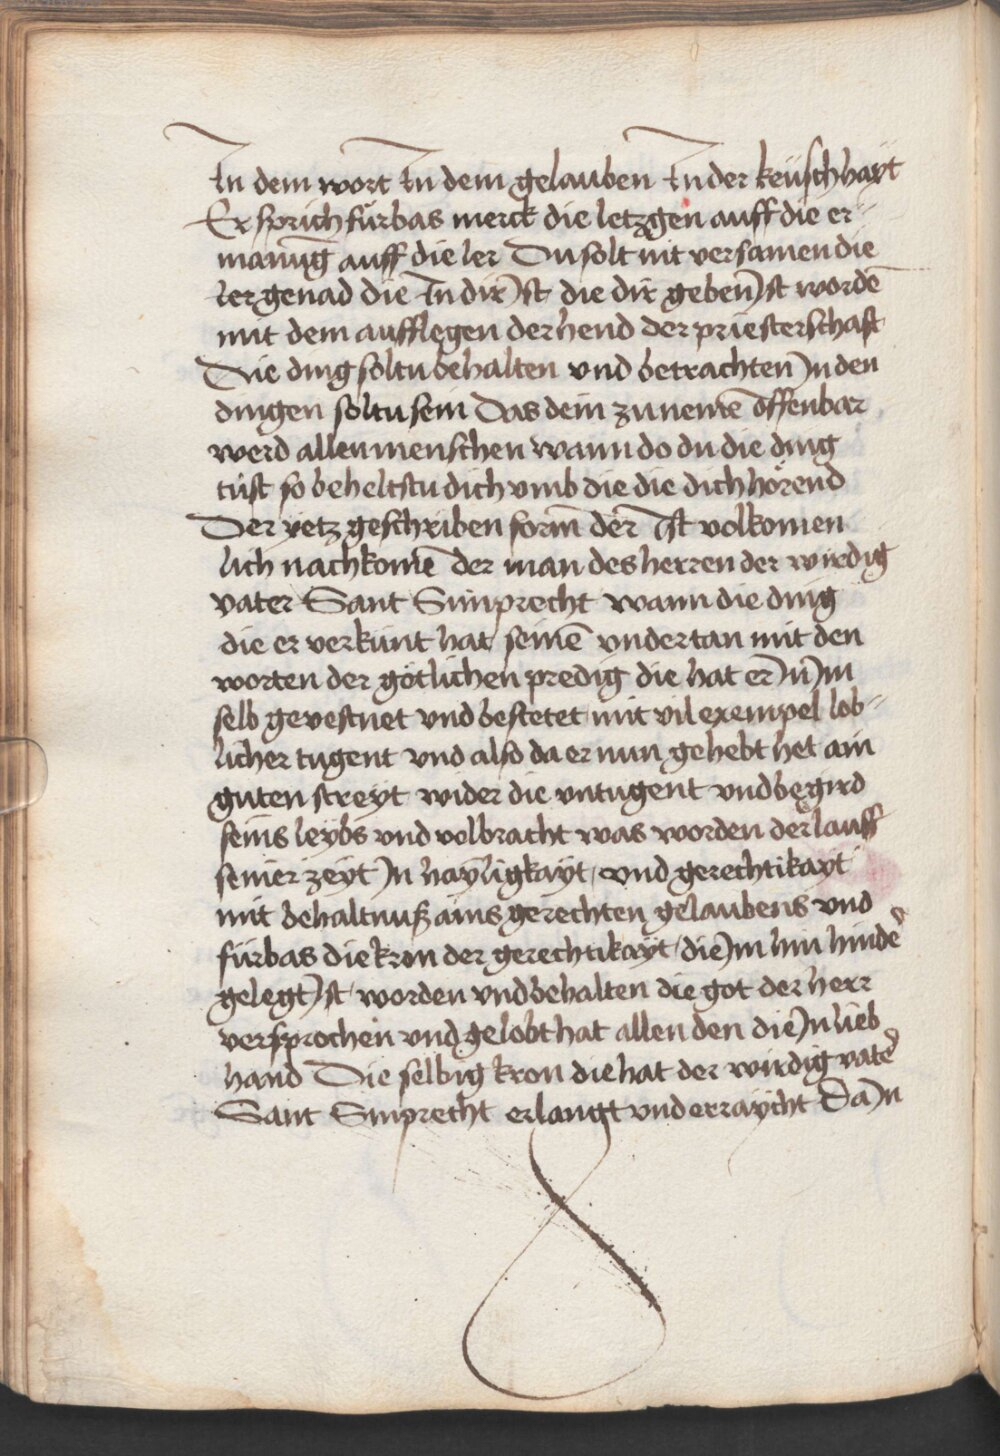 In dem wort In dem gelauben In der keüschhayt
Er sprich fürbas merck die letzgen auff die er-
manūg auff die ler Du solt nit versamen die
ler genad die In dir Ist die dir geben Ist wordē
mit dem aufflegen der hend der priesterschaft
Die ding soltu behalten vnd betrachten In den
dingen soltu sein Das dein zunemē offenbar
werd allen menschen wann do du die ding
tůst so beheltstu dich vmb die die dich hörend
Der yetz geschriben form der Ist volkomen
lich nachkomē der man des herren der wirdig
vater Sant Simprecht wann die ding
die er verkünt hat seinē vndertan mit den
worten der götlichen predig die hat er In Im
selb gevestnet vnd bestetet mit vil exempel lob-
licher tugent vnd also da er nun gehebt het ain
guten streyt wider die vntugent vnd begird
seins leybs vnd volbracht was worden der lauff
seiner zeyt In hayligkayt vnd gerechtikayt
mit behaltnuß ains gerechten gelaubens vnd
fürbas die kron der gerechtikayt die Im hin hinder
gelegt Ist worden vnd behalten die got der herr
versprochen vnd gelobt hat allen den die In lieb
hand Die selbig kron die hat der wirdig vater
Sant Simprecht erlangt vnd erraycht Da In